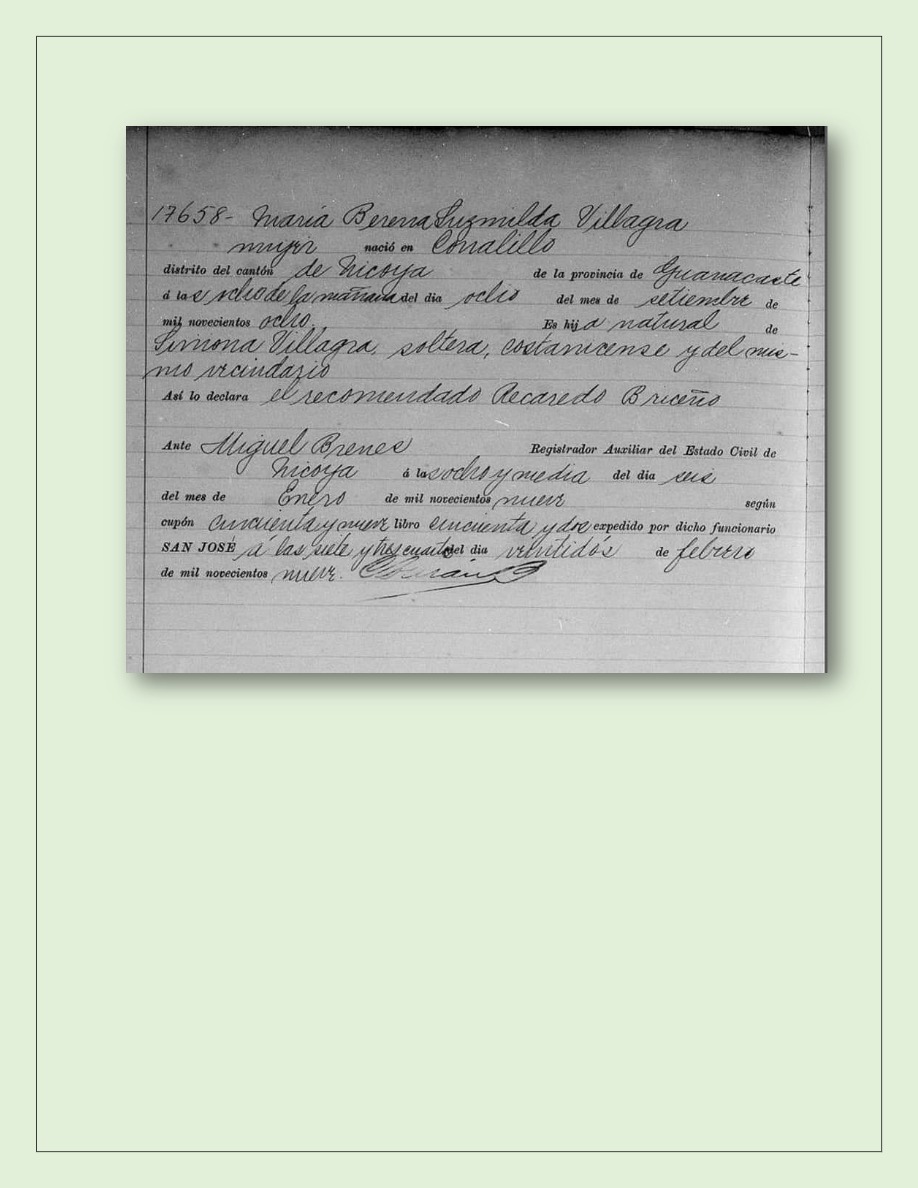 17658- María Berena Luzmilda Villagra
mujer nació en Corralillo
distrito del cantón de Nicoya de la provincia de Guanacaste
á las ocho de la mañana del dia ocho del mes de setiembre de
mil novecientos ocho. Es hija natural de
Simona Villagra, soltera, costarricense y del mis-
mo vecindario
Así lo declara el recomendado Recaredo Briceño
Ante Miguel Brenes Registrador Auxiliar del Estado Civil de
Nicoya á las ocho y media del dia seis
del mes de Enero de mil novecientos nueve según
cupón cincuenta y nueve libro cincuenta y dos expedido por dicho funcionario
SAN JOSÉ á las siete y tres cuartos del dia veintidós de febrero
de mil novecientos nueve.